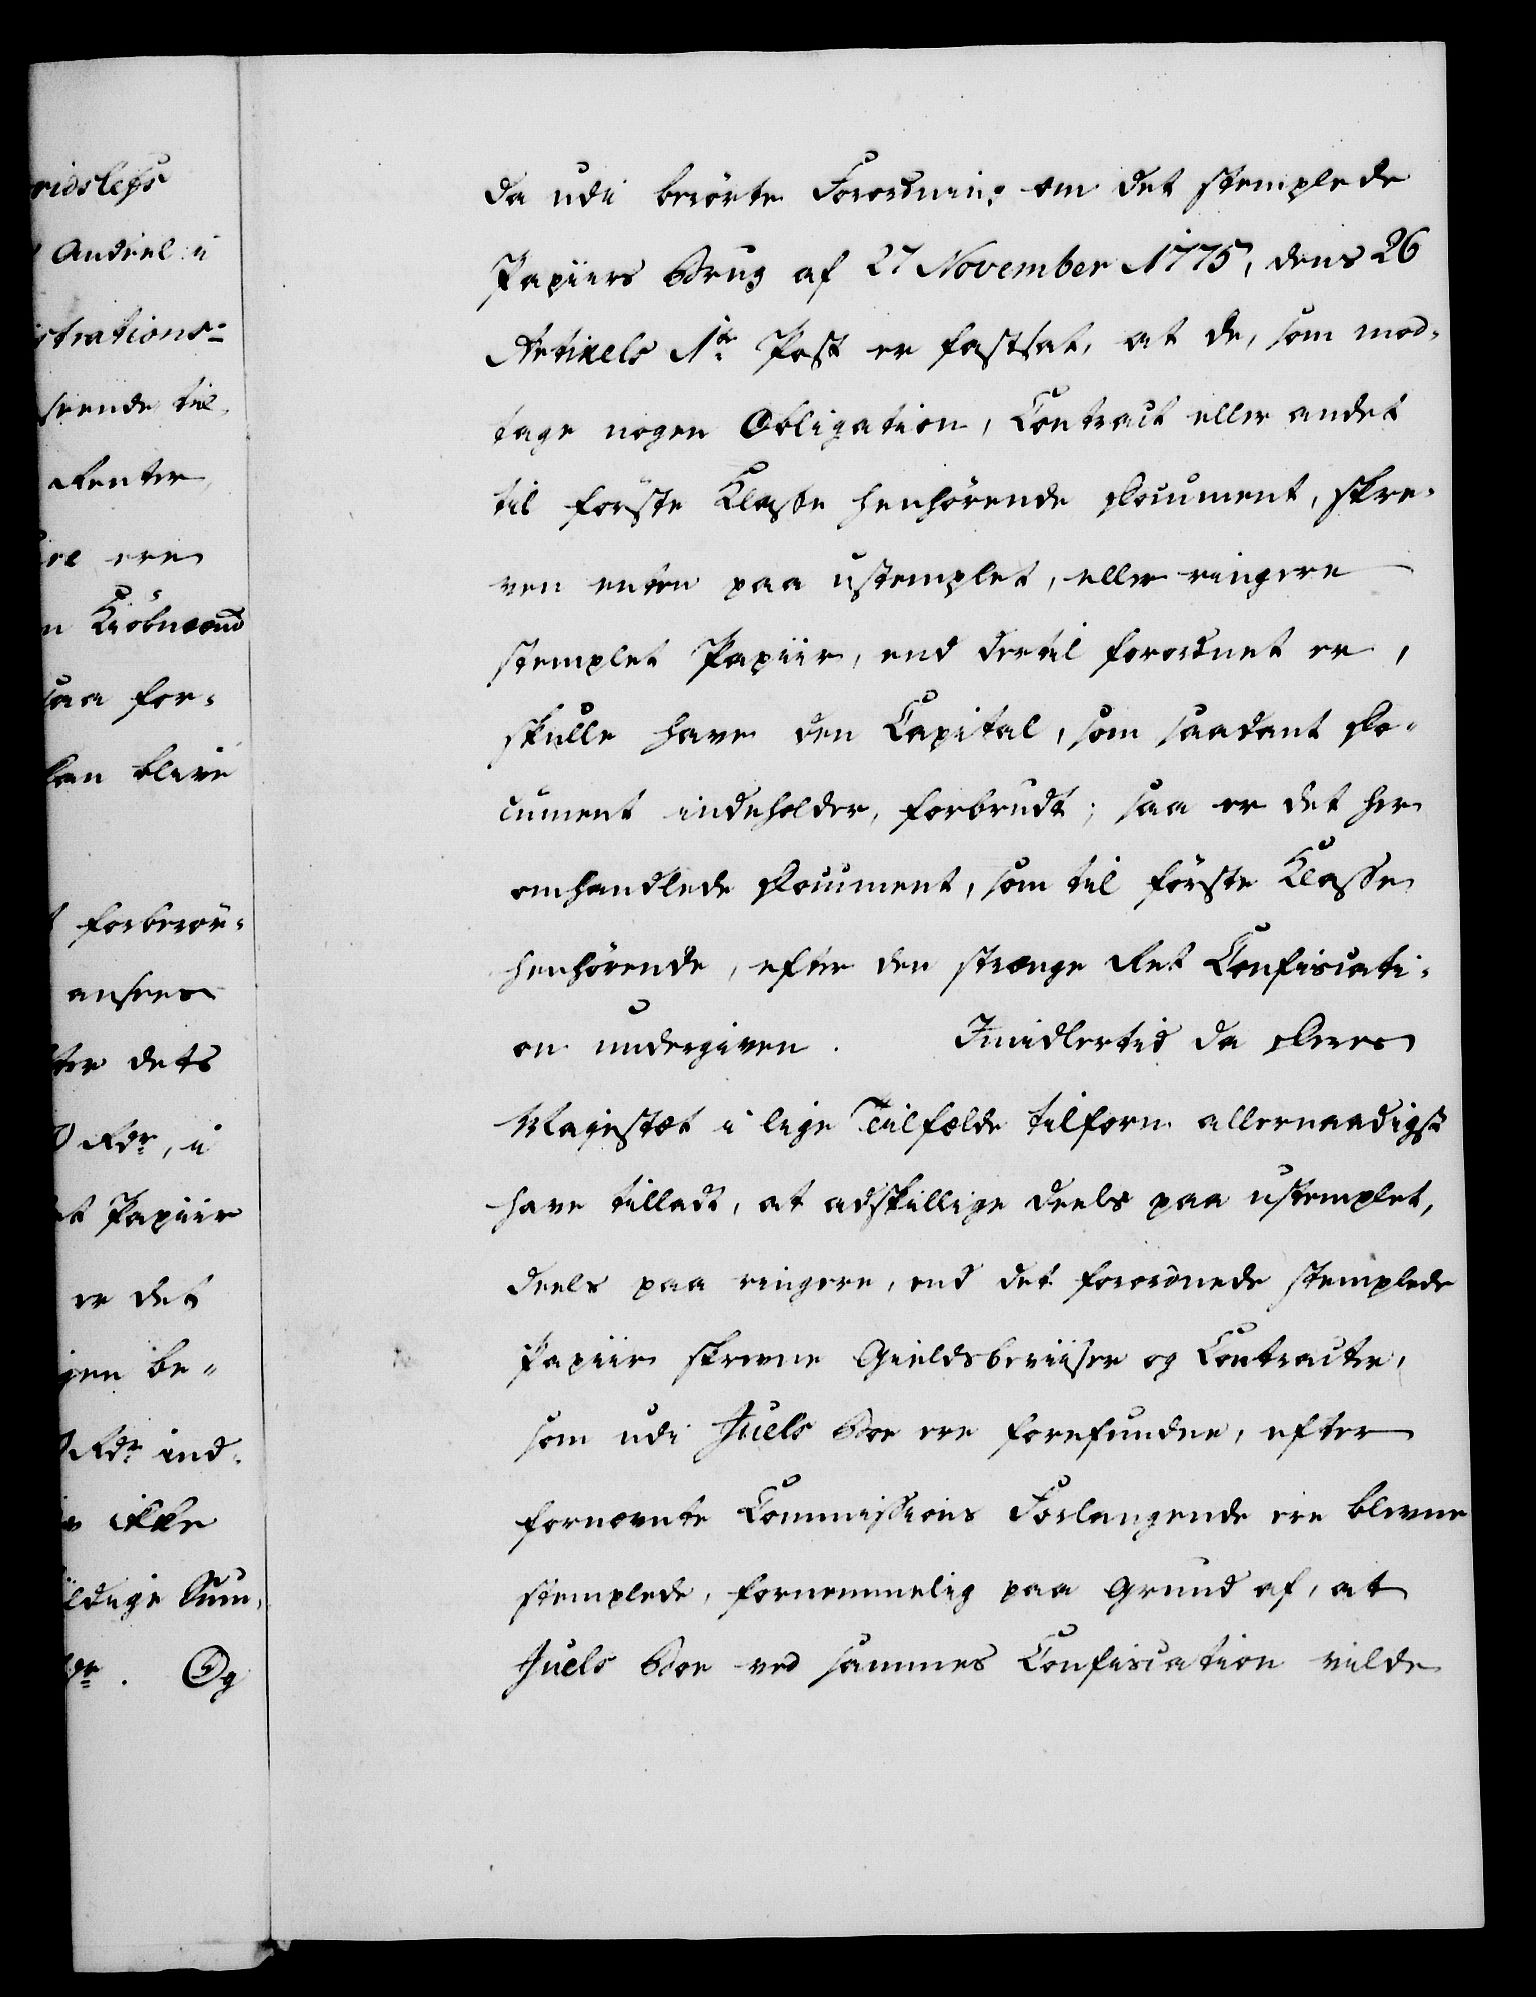 ridslefs
Andeel i
strations-
seende til
Renter,
ere
n Kiöbmænd
saa for-
kan blive
forberör-
ansees
dets
Rdr, i
et Papiir
er det
gen be-
Rdr ind-
ikke
ldige Sum,
Og
da udi berörte Forordning om det stemplede
Papiirs Brug af 27 November 1775, dens 26
Artikels 1te Post er fastsat, at de, som mod-
tage nogen Obligation, Contract eller andet
til förste Klasse henhörende Document, skre-
ven enten paa ustemplet, eller ringere
stemplet Papiir, end dertil forordnet er,
skulle have den Capital, som saadant Do-
cument indeholder, forbrudt; saa er det her
omhandlede Document, som til förste Klasse
henhörende, efter den strænge Ret Confiscati-
on undergiven. Imidlertid da Deres
Majestæt i lige Tilfælde tilforn allernaadigst
have tilladt, at adskillige deels paa ustemplet,
deels paa ringere, end det forordnede stemplede
Papiir skrevne Gieldsbeviiser og Contracter,
som udi Juels Boe ere forefundne, efter
fornævnte Commissions Forlangende ere blevne
stemplede, fornemmelig paa Grund af, at
Juels Boe ved sammes Confiscation vilde